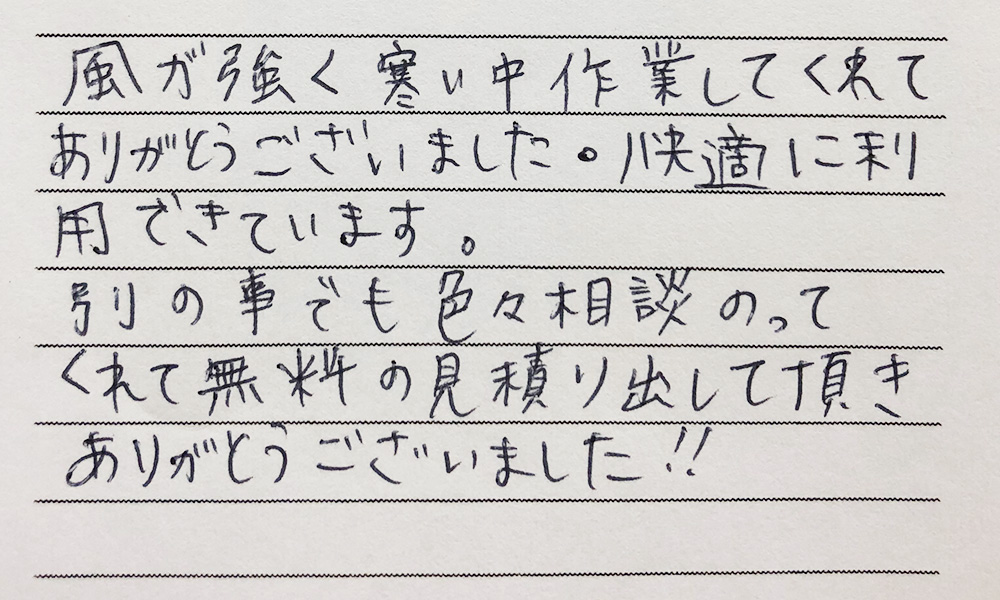 風が強く寒い中作業してくれて
ありがとうございました。快適に利
用できています。
別の事でも色々相談のって
くれて無料の見積り出して頂き
ありがとうございました!!